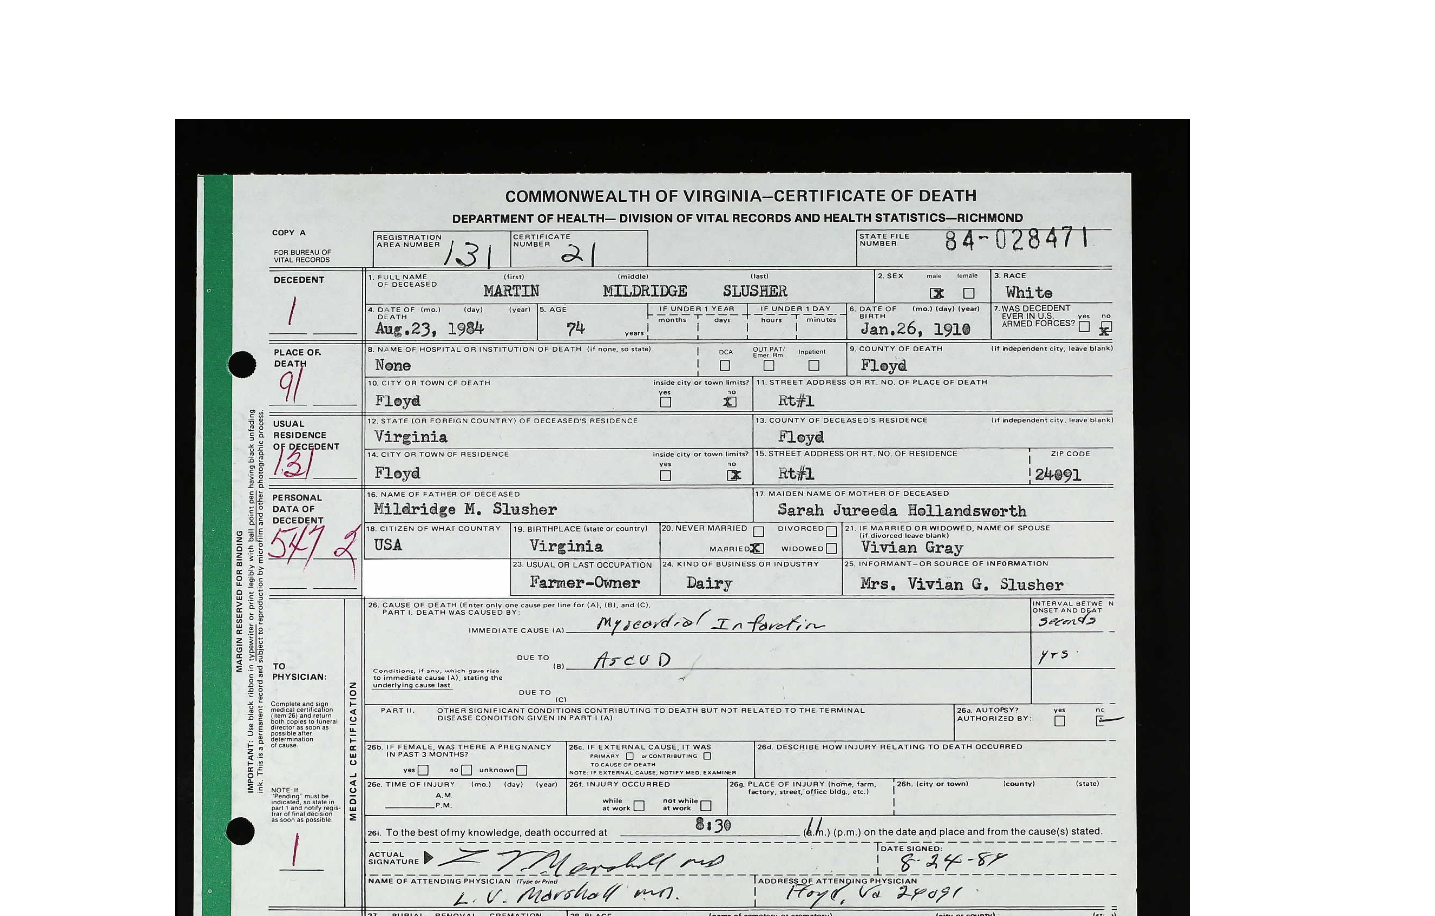 COMMONWEALTH OF VIRGINIA—CERTIFICATE OF DEATH
DEPARTMENT OF HEALTH— DIVISION OF VITAL RECORDS AND HEALTH STATISTICS—RICHMOND
COPY A
FOR BUREAU OF VITAL RECORDS
REGISTRATION AREA NUMBER 131 CERTIFICATE NUMBER 21 STATE FILE NUMBER 84-028471
DECEDENT
1
1. FULL NAME OF DECEASED (first) (middle) (last) 2. SEX male female 3. RACE
MARTIN MILDRIDGE SLUSHER X White
4. DATE OF DEATH (mo.) (day) (year) 5. AGE IF UNDER 1 YEAR months days IF UNDER 1 DAY hours minutes 6. DATE OF BIRTH (mo.) (day) (year) 7. WAS DECEDENT EVER IN U.S. ARMED FORCES? yes no
Aug.23, 1984 74 years Jan.26, 1910 X
PLACE OF DEATH
91
8. NAME OF HOSPITAL OR INSTITUTION OF DEATH (if none, so state) DOA OUT PAT/ Emer Rm Inpatient 9. COUNTY OF DEATH (if independent city, leave blank)
None Floyd
10. CITY OR TOWN OF DEATH inside city or town limits? yes no 11. STREET ADDRESS OR RT. NO. OF PLACE OF DEATH
Floyd X Rt#1
USUAL RESIDENCE OF DECEDENT
131
12. STATE (OR FOREIGN COUNTRY) OF DECEASED'S RESIDENCE 13. COUNTY OF DECEASED'S RESIDENCE (if independent city, leave blank)
Virginia Floyd
14. CITY OR TOWN OF RESIDENCE inside city or town limits? yes no 15. STREET ADDRESS OR RT. NO. OF RESIDENCE ZIP CODE
Floyd X Rt#1 24091
PERSONAL DATA OF DECEDENT
547 2
16. NAME OF FATHER OF DECEASED 17. MAIDEN NAME OF MOTHER OF DECEASED
Mildridge M. Slusher Sarah Jureeda Hollandsworth
18. CITIZEN OF WHAT COUNTRY 19. BIRTHPLACE (state or country) 20. NEVER MARRIED DIVORCED 21. IF MARRIED OR WIDOWED, NAME OF SPOUSE (if divorced leave blank)
USA Virginia MARRIED X WIDOWED Vivian Gray
23. USUAL OR LAST OCCUPATION 24. KIND OF BUSINESS OR INDUSTRY 25. INFORMANT—OR SOURCE OF INFORMATION
Farmer-Owner Dairy Mrs. Vivian G. Slusher
MARGIN RESERVED FOR BINDING
IMPORTANT: Use black ribbon in typewriter or print legibly with ball point pen having black unfading
ink. This is a permanent record and subject to reproduction by microfilm and other photographic process.
MEDICAL CERTIFICATION
26. CAUSE OF DEATH (Enter only one cause per line for (A), (B), and (C).
PART I. DEATH WAS CAUSED BY: INTERVAL BETWEEN ONSET AND DEAT
IMMEDIATE CAUSE (A) Myocardial Infarction seconds
DUE TO (B) ASCVD yrs
Conditions, if any, which gave rise to immediate cause (A), stating the underlying cause last
DUE TO (C)
TO PHYSICIAN:
Complete and sign medical certification (item 26) and return both copies to funeral director as soon as possible after determination of cause.
PART II. OTHER SIGNIFICANT CONDITIONS CONTRIBUTING TO DEATH BUT NOT RELATED TO THE TERMINAL
DISEASE CONDITION GIVEN IN PART I (A) 26a. AUTOPSY? AUTHORIZED BY: yes no
26b. IF FEMALE, WAS THERE A PREGNANCY IN PAST 3 MONTHS? yes no unknown
26c. IF EXTERNAL CAUSE, IT WAS PRIMARY or CONTRIBUTING TO CAUSE OF DEATH
NOTE: IF EXTERNAL CAUSE, NOTIFY MED. EXAMINER
26d. DESCRIBE HOW INJURY RELATING TO DEATH OCCURRED
NOTE: If "Pending" must be indicated, so state in part 1 and notify registrar of final decision as soon as possible.
1
26e. TIME OF INJURY (mo.) (day) (year) A.M. P.M.
26f. INJURY OCCURRED while at work not while at work
26g. PLACE OF INJURY (home, farm, factory, street, office bldg., etc.)
26h. (city or town) (county) (state)
26i. To the best of my knowledge, death occurred at 8:30 (a.m.) (p.m.) on the date and place and from the cause(s) stated.
ACTUAL SIGNATURE L V Marshall MD DATE SIGNED: 8-24-84
NAME OF ATTENDING PHYSICIAN (Type or Print) ADDRESS OF ATTENDING PHYSICIAN
L. V. Marshall MD. Floyd, Va 24091